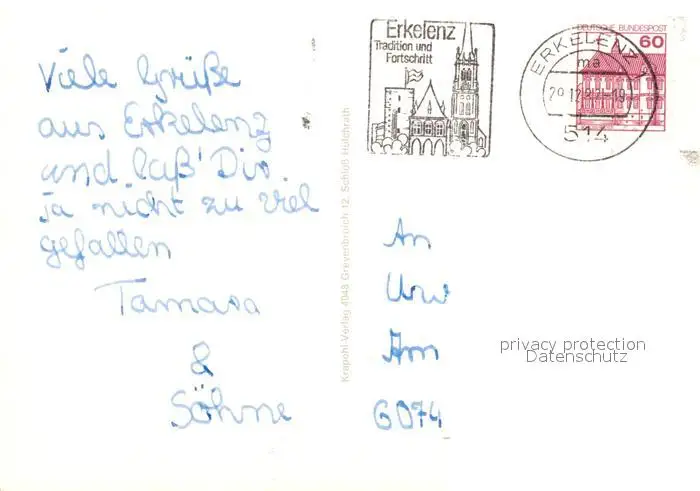 Viele Grüße
aus Erkelenz
und laß' Dir
ja nicht zu viel
gefallen
Tamara
&
Söhne
Krapohl-Verlag 4048 Grevenbroich 12, Schloß Hülchrath
Erkelenz
Tradition und
Fortschritt
ERKELENZ 1
ma
514
DEUTSCHE BUNDESPOST
60
An
Uw
Am
6074
privacy protection
Datenschutz